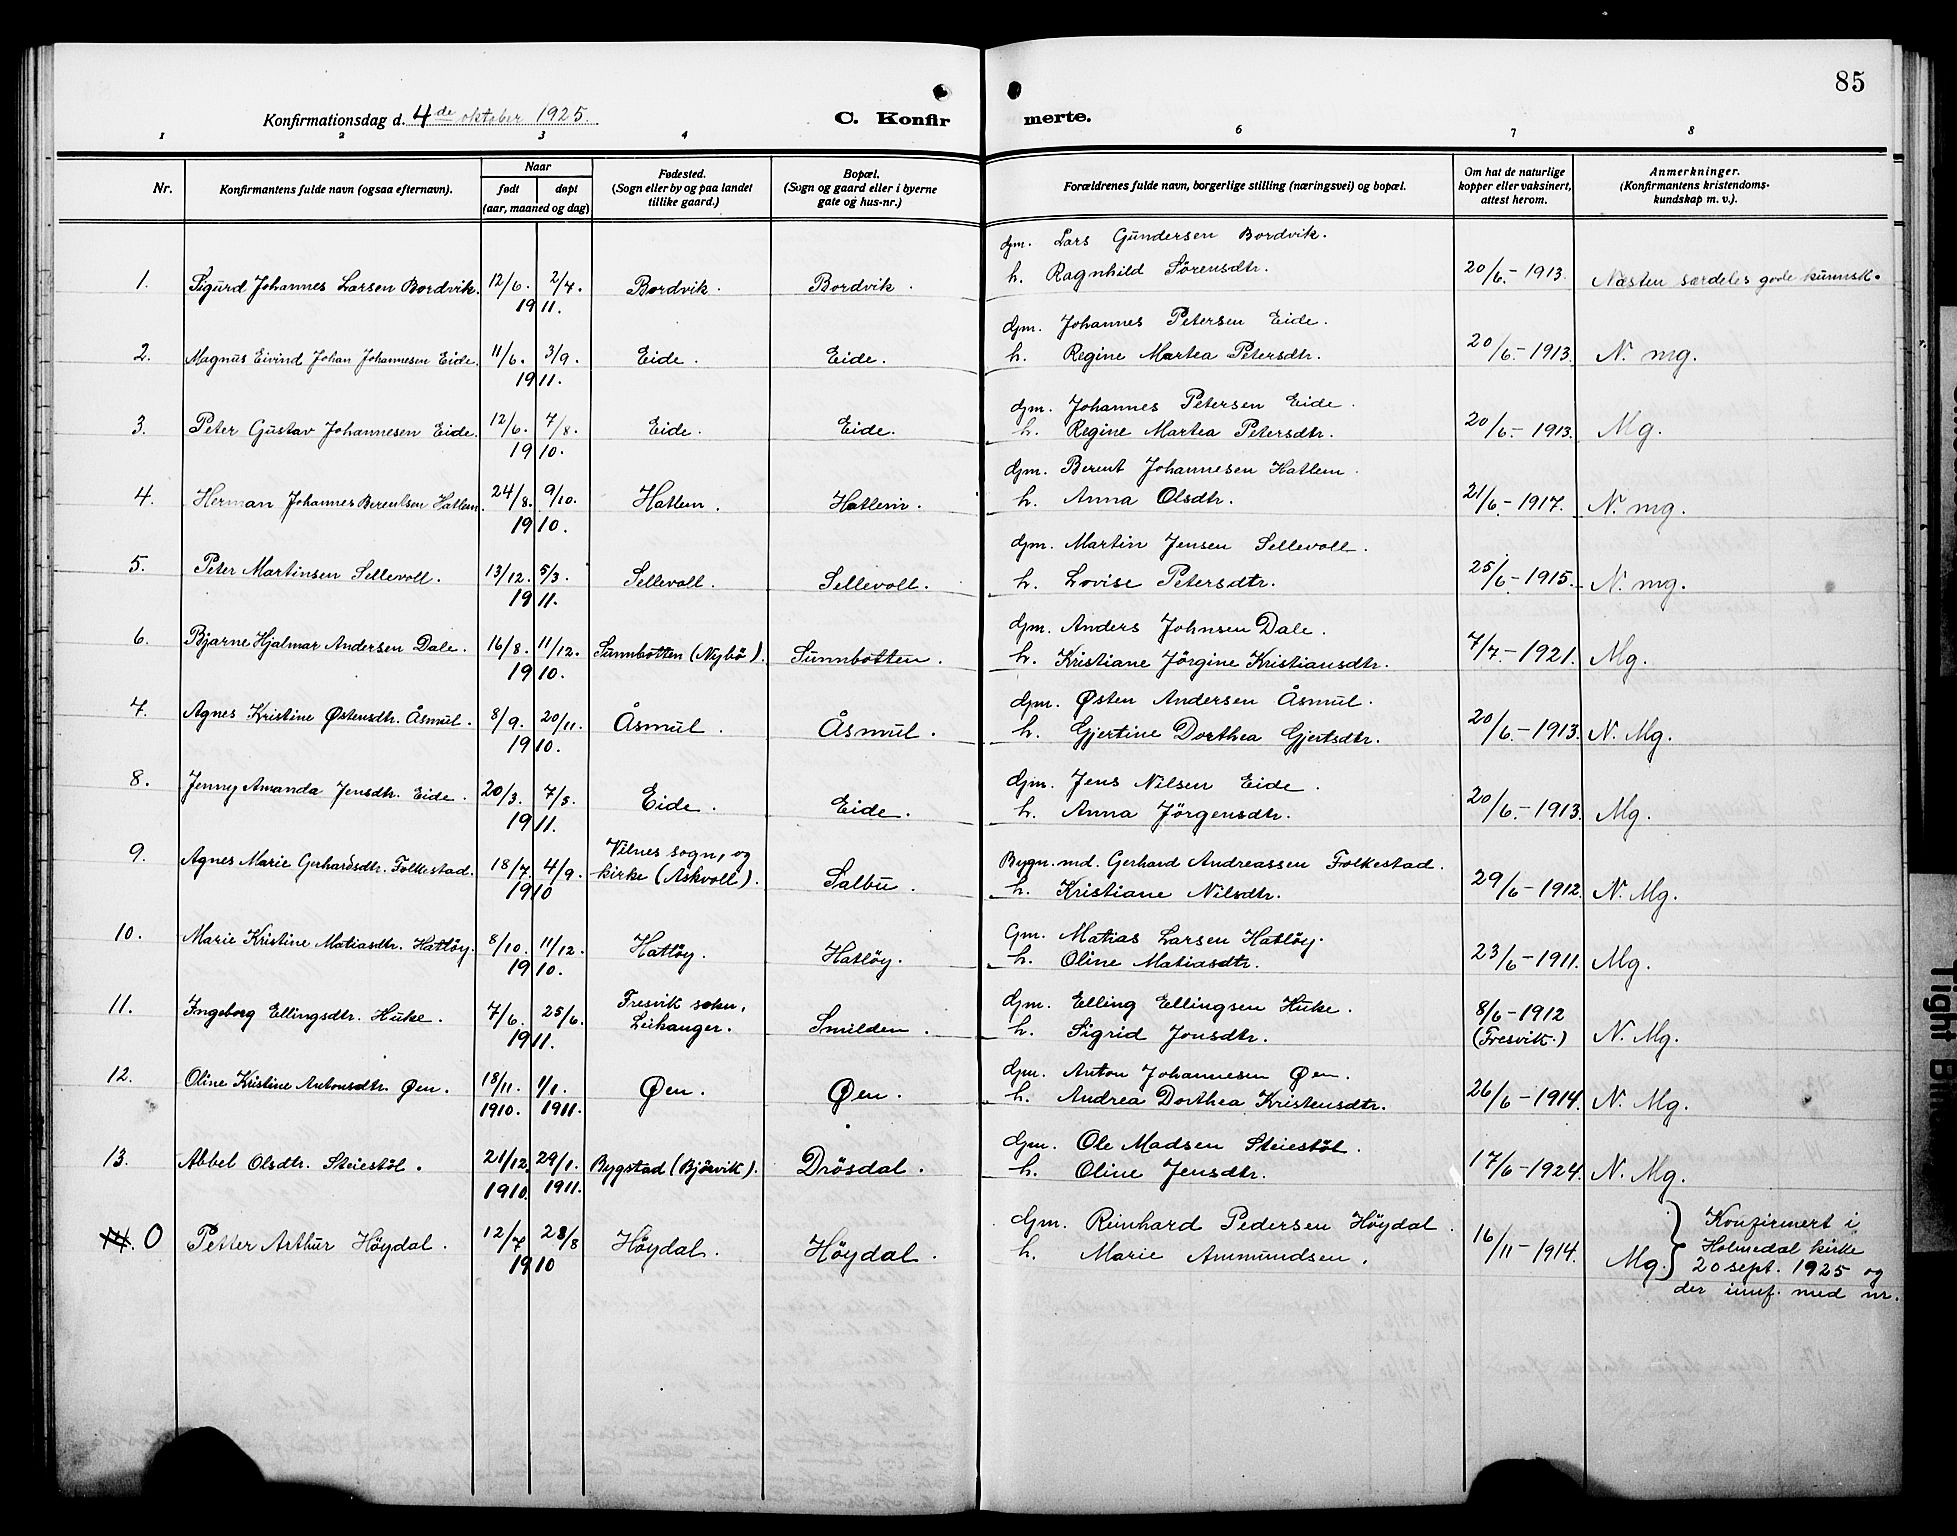 85
Konfirmationsdag d. 4de oktober 1925. C. Konfirmerte.
1 2 3 4 6 7 8
Nr. Konfirmantens fulde navn (ogsaa efternavn). Naar født døpt (aar, maaned og dag) Fødested. (Sogn eller by og paa landet tillike gaard.) Bopæl. (Sogn og gaard eller i byerne gate og hus-nr.) Forældrenes fulde navn, borgerlige stilling (næringsvei) og bopæl. Om hat de naturlige kopper eller vaksinert, attest herom. Anmerkninger. (Konfirmantens kristendoms-kundskap m. v.).
gm. Lars Gundersen Bordvik.
1. Sigurd Johannes Larsen Bordvik. 12/6. 2/7. Bordvik. Bordvik. h. Ragnhild Sörensdtr. 20/6.-1913. Næsten særdeles gode kunnsk.
1911.
gm. Johannes Petersen Eide.
2. Magnus Eivind Johan Johannesen Eide. 11/6. 3/9. Eide. Eide. h. Regine Martea Petersdtr. 20/6.-1913. N. mg.
1911.
gm. Johannes Petersen Eide.
3. Peter Gustav Johannesen Eide. 12/6. 7/8. Eide. Eide. h. Regine Martea Petersdtr. 20/6.-1913. Mg.
1910.
gm. Berent Johannesen Hatlem.
4. Herman Johannes Berentsen Hatlem. 24/8. 9/10. Hatlem. Hatlem. h. Anna Olsdtr. 21/6.-1917. N. mg.
1910.
gm. Martin Jensen Sellevoll.
5. Peter Martinsen Sellevoll. 13/12. 5/3. Sellevoll. Sellevoll. h. Lovise Petersdtr. 25/6.-1915. N. mg.
1911.
gm. Anders Johnsen Dale.
6. Bjarne Hjalmar Andersen Dale. 16/8. 11/12. Sunnbotten (Nybö). Sunnbotten. h. Kristiane Jörgine Kristiansdtr. 7/7.-1921. Mg.
1910.
gm. Østen Andersen Åsmul.
7. Agnes Kristine Østensdtr. Åsmul. 8/9. 20/11. Åsmul. Åsmul. h. Gjertine Dorthea Gjertsdtr. 20/6.-1913. N. Mg.
1910.
gm. Jens Nilsen Eide.
8. Jenny Amanda Jensdtr. Eide. 20/3. 7/5. Eide. Eide. h. Anna Jörgensdtr. 20/6-1913. Mg.
1911.
Bygn. md. Gerhard Andreassen Folkestad.
9. Agnes Marie Gerhardsdtr. Folkestad. 18/7. 4/9. Vilnes sogn, og kirke (Askvoll). Salbu. h. Kristiane Nilsdtr. 29/6-1912. N. Mg.
1910
Gm. Matias Larsen Hatlöy.
10. Marie Kristine Matiasdtr. Hatlöy. 8/10. 11/12. Hatlöy. Hatlöy. h. Oline Matiasdtr. 23/6-1911. Mg.
1910.
gm. Elling Ellingsen Huke.
11. Ingeborg Ellingsdtr. Huke. 7/6. 25/6. Fresvik sokn, Leikanger. Smilden. h. Sigrid Jonsdtr. 8/6-1912 (Fresvik.) N. Mg.
1911.
gm. Anton Johannesen Øen.
12. Oline Kristine Antonsdtr. Øen. 18/11. 1/1. Øen. Øen. h. Andrea Dorthea Kristensdtr. 26/6-1914. N. Mg.
1910. 1911.
gm. Ole Madsen Steiestöl.
13. Abbel Olsdtr. Steiestöl. 21/12. 29/1. Bygstad (Björvik). Drösdal. h. Oline Jensdtr. 17/6-1924. N. Mg.
1910. 1911.
gm. Reinhard Pedersen Höydal.
0 Petter Arthur Höydal. 12/7 28/8 Höydal. Höydal. h. Marie Ammundsen. 16/11-1914. Mg. } Konfirmert i
1910 Holmedal kirke
20 sept. 1925 og
der innf. med nr.
Tight Bin